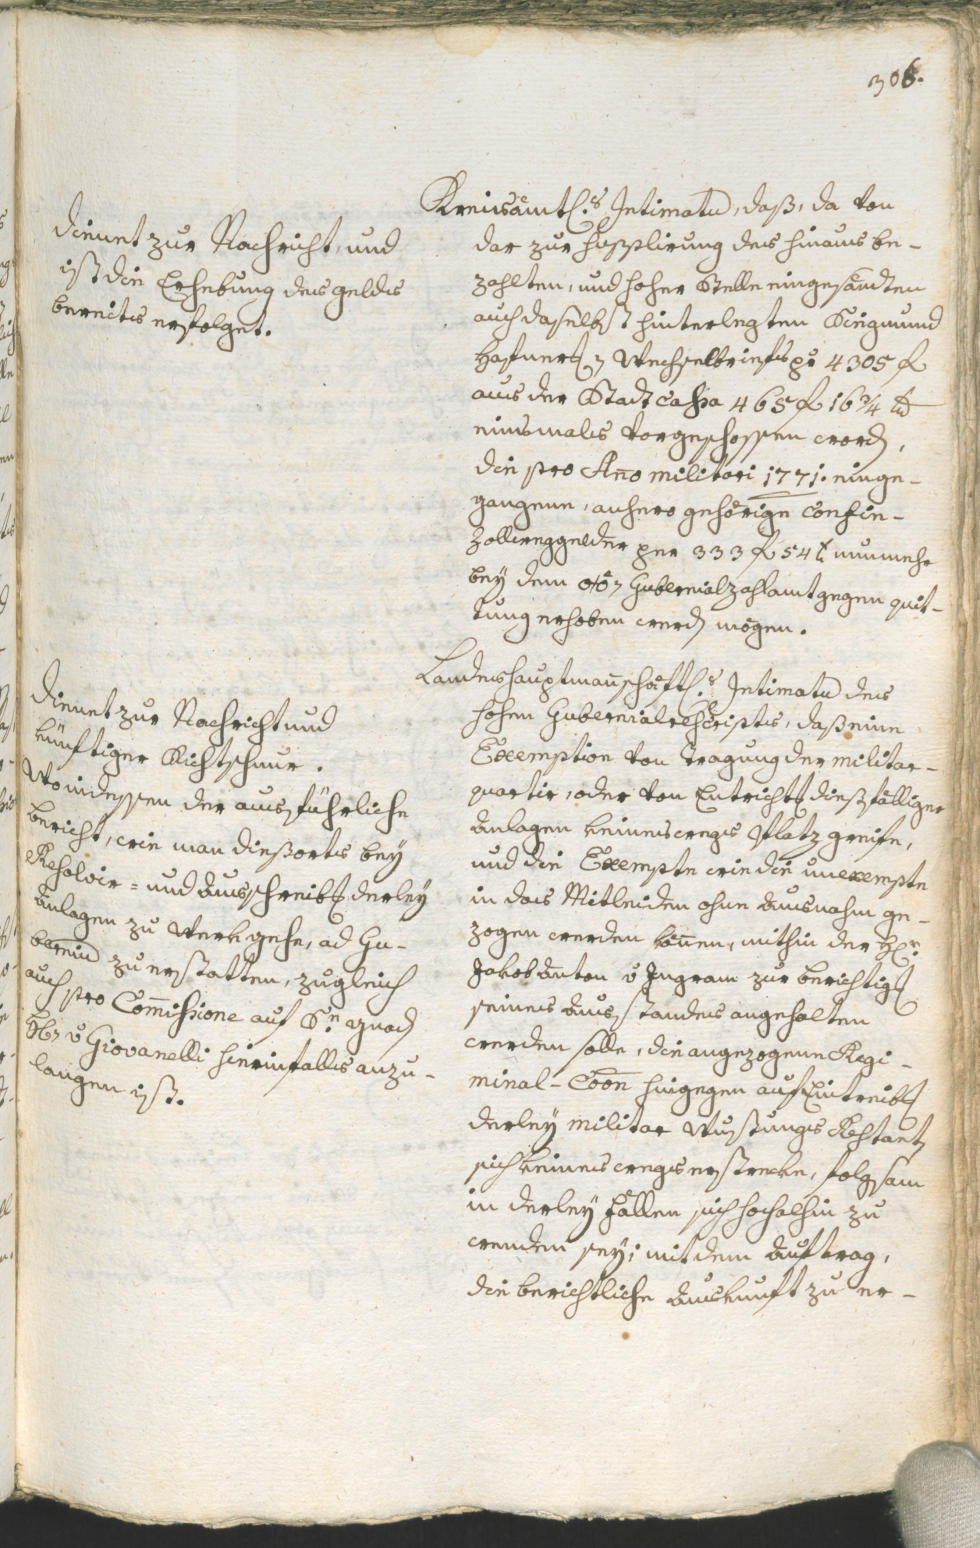 306.
Dienet zur Nachricht, und
ist die Erhebung des geldes
bereits erfolget.
Kreisämtl:s Intimatum, daß, da von
dar zur Supplirung des hinaus be-
zahlten, und hoher Stelle eingesandten
auch daselbst hinterlegten Sigmund
Hafnerischen Wechselbriefs per 4305 f
aus der Stadt Cassa 465 f 16 3/4 xr
einsmals vorgeschossen worden,
die pro Anno militari 1771. einge-
gangene, anhero gehörige Confin-
zollweggelder per 333 f 54 x nunmehr
bey dem Gubernialzahlamt gegen quit-
tung erhoben werden mögen.
Dienet zur Nachricht und
künftiger Richtschnur.
Wo indessen der ausführliche
bericht, wie man dießorts bey
Repartir- und Ausschreibung derley
Anlagen zu Werk gehe, ad Gu-
bernium zu erstatten, zugleich
auch pro Commissione auf Sr. gnaden
H: v Giovanelli hierinfalls anzu-
langen ist.
Landeshauptmanschäftl:s Intimatum des
hohen Gubernialrescripts, daß eine
Exemption von Tragung der militar-
quartir, oder von Entrichtung dießfälliger
Anlagen keineswegs Platz greife,
und die Exempte wie die unexempte
in das Mitleiden ohne Ausnahm ge-
zogen werden können, mithin der H:r
Jakob Anton v Ingram zur berichtigung
seines Ausstandes angehalten
werden solle, die angezogene Regi-
minal-Coon hingegen auf Eintreibung
derley militar Rustungs Restanten
sich keineswegs erstrecke, folgsam
in derley fällen sich hochalhin zu
wenden sey; mit dem Auftrag,
die berichtliche Auskunft zu er-